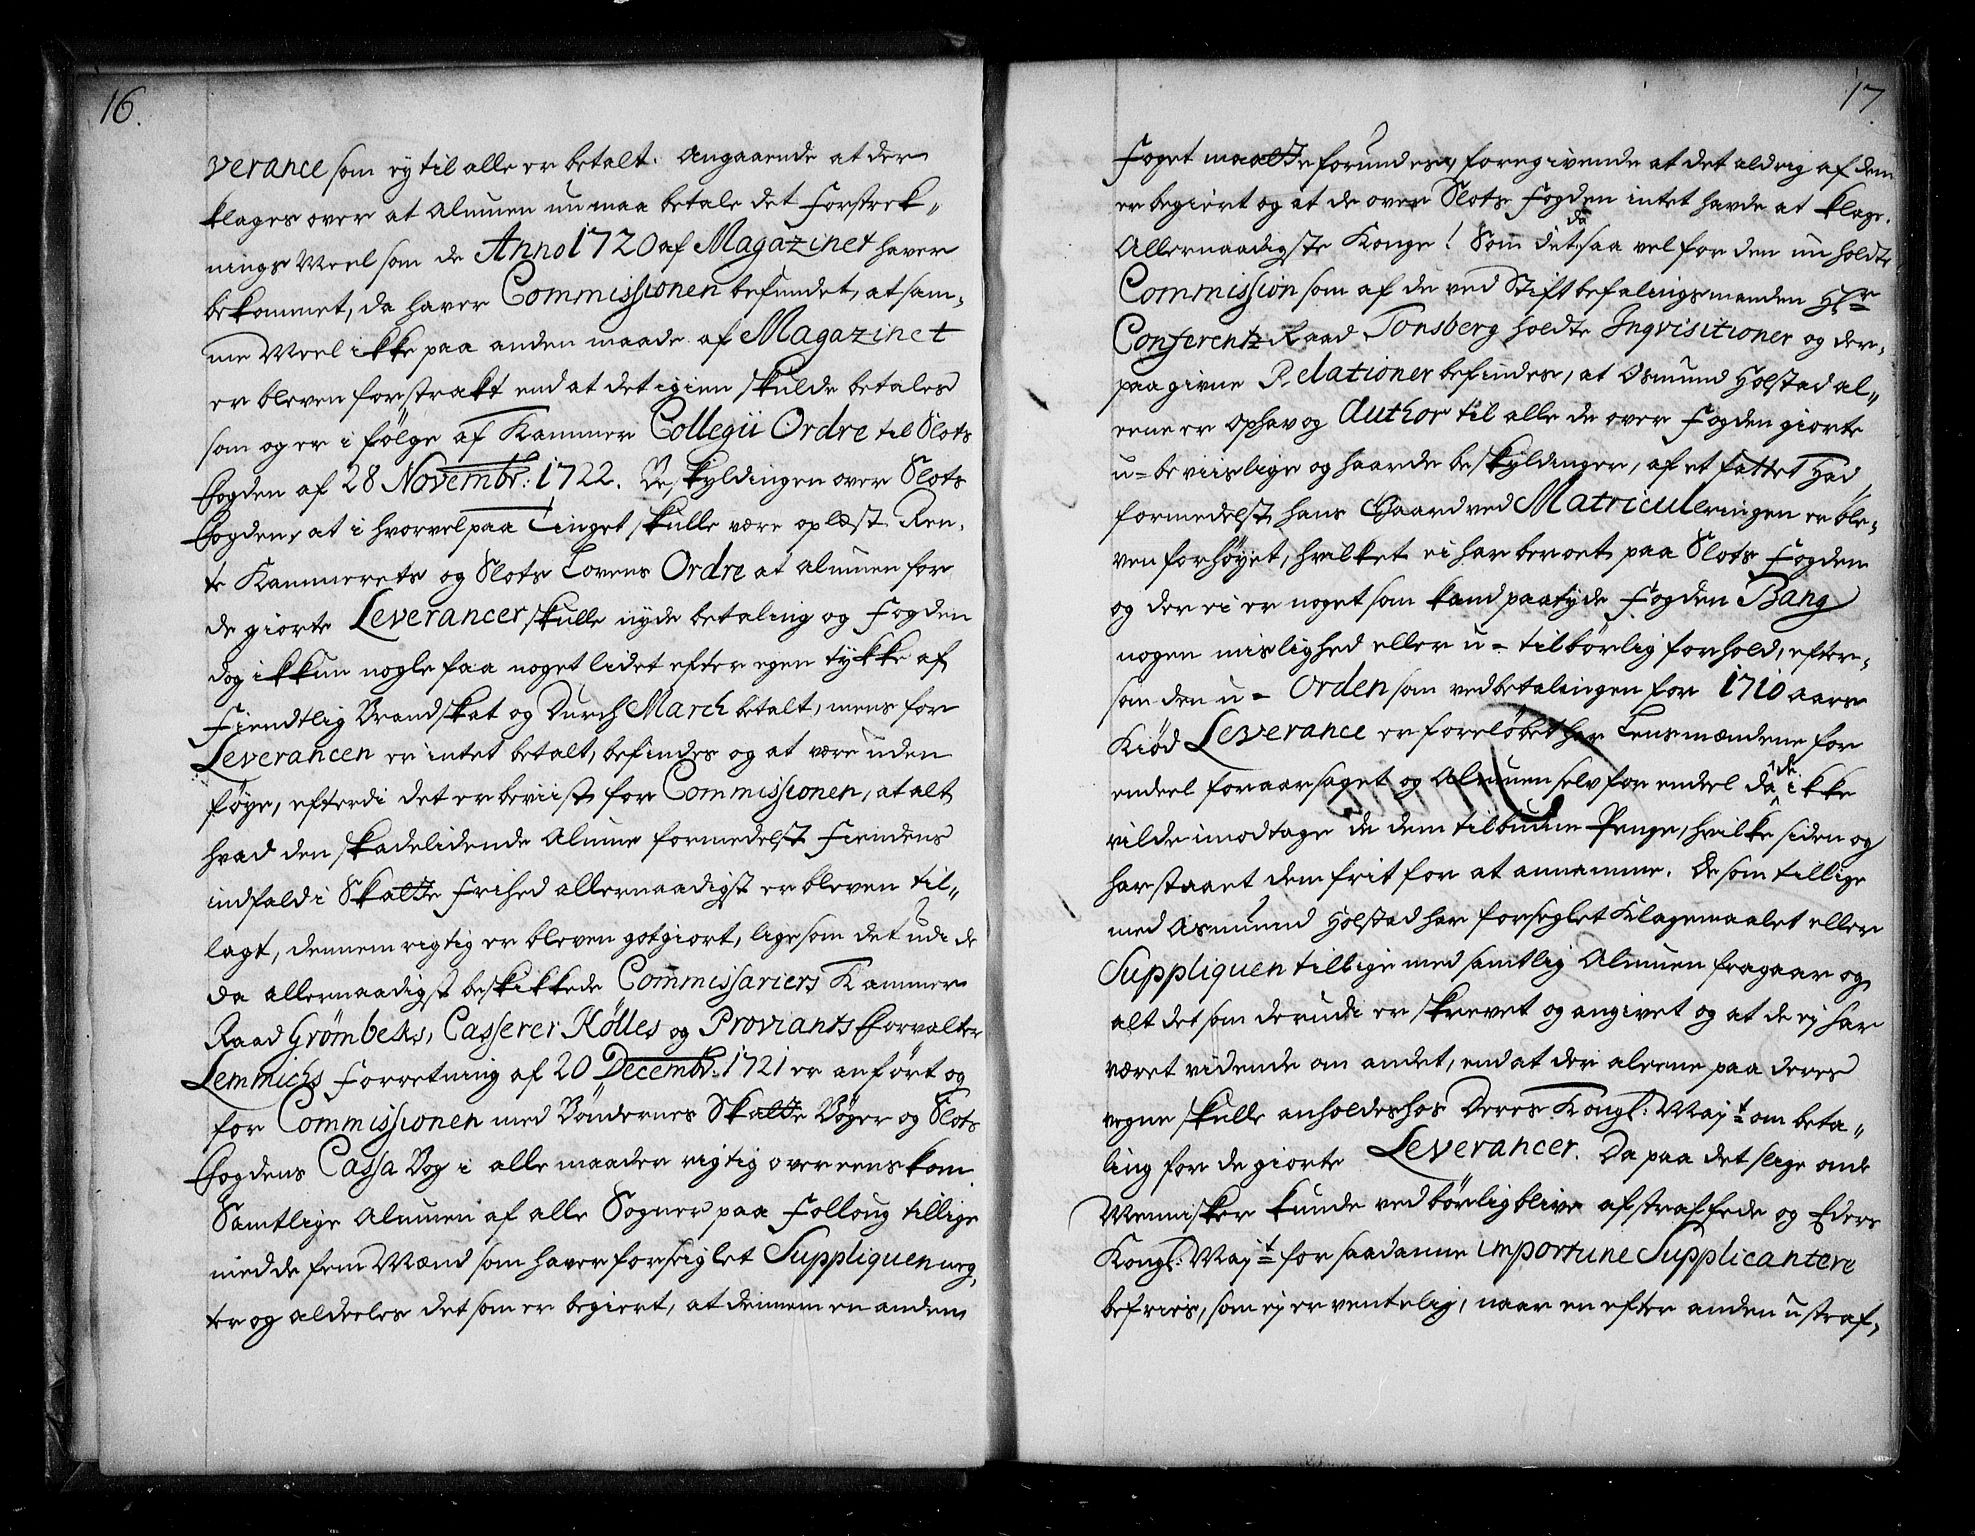 16.
verance som ey til alle er betalt. Angaaende at der
klages over at Almuen nu maa betale det Forstrek-
nings Meel som de Anno 1720 af Magazinet haver
bekommet, da haver Commissionen befundet, at sam-
me Meel ikke paa anden maade af Magazinet
er bleven forstrakt end at det igien skulde betales
som og er i følge af Kammer Collegii Ordre til Slots
Fogden af 28 Novembr: 1722. Beskyldingen over Slots
Fogden, at i hvorvel paa Tinget skulle være oplæst Ren-
te Kammerets og Slots Lovens Ordre at Almuen for
de giorte Leverancer skulle nyde betaling og Fogden
dog ikkun nogle faa noget lidet efter egen tykke af
Fiendtlig Brandskat og Durch March betalt, mens for
Leverancen er intet betalt, befindes og at være uden
føye, efterdi det er beviist for Commissionen, at alt
hvad den skadelidende Almue formedelst Fiendens
indfald i Skatte Frihed allernaadigst er bleven til-
lagt, dennem rigtig er bleven gotgiort, lige som det udi de
da allernaadigst beskikkede Commissariers Kammer
Raad Grömbechs, Casserer Kölles og Proviants Forvalter
Lemmichs Forretning af 20 Decembr: 1721 er anført og
for Commissionen med Bøndernes Skatte Bøger og Slots
Fogdens Cassa Bog i alle maader rigtig over eens kom.
Samtlige Almuen af alle Sogner paa Folloug tillige
med de fem Mænd som haver forseiglet Suppliquen neg-
ter og aldeeles det som er begiert, at dennem en anden
17.
Foget maatte forundes, foregivende at det aldrig af dem
er begiert og at de over Slots Fogden intet havde at klage.
Allernaadigste Konge! Som det da saa vel for den nu holdte
Commission som af de ved Stiftbefalingsmanden Hr
Conferentz Raad Tonsberg holdte Inqvisitioner og der-
paa givne Relationer befindes, at Osmund Holstad al-
eene er Ophav og Author til alle de over Fogden giorte
u-beviislige og haarde beskyldinger, af et fattet Had
formedelst hans Gaard ved Matriculeringen er ble-
ven forhøyet, hvilket ei har beroet paa Slots Fogden
og der ei er noget som kand paatyde Fogden Bang
nogen mislighed eller u-tilbørlig forhold, efter-
som den u-Orden som ved betalingen for 1710 aars
Kiød Leverance er foreløbet har Lensmændene for
endeel foraarsaget og Almuen selv for endeel da de ikke
vilde imodtage de dem tilbudne Penge, hvilke siden og
har staaet dem frit for at annamme. De som tillige
med Asmund Holstad har forseglet Klagemaalet eller
Suppliquen tillige med samtlig Almuen fragaar og
alt det som derudi er skrevet og angivet og at de ej har
været vidende om andet, end at der aleene paa deres
vegne skulle anholdes hos Deres Kongl: Mayt om beta-
ling for de giorte Leverancer. Da paa det slige onde
Mennisker kunde ved børlig blive afstraffede og Eders
Kongl: Mayt for saadanne importune Supplicantere
befries, som ej er ventelig, naar en efter anden ustraf-